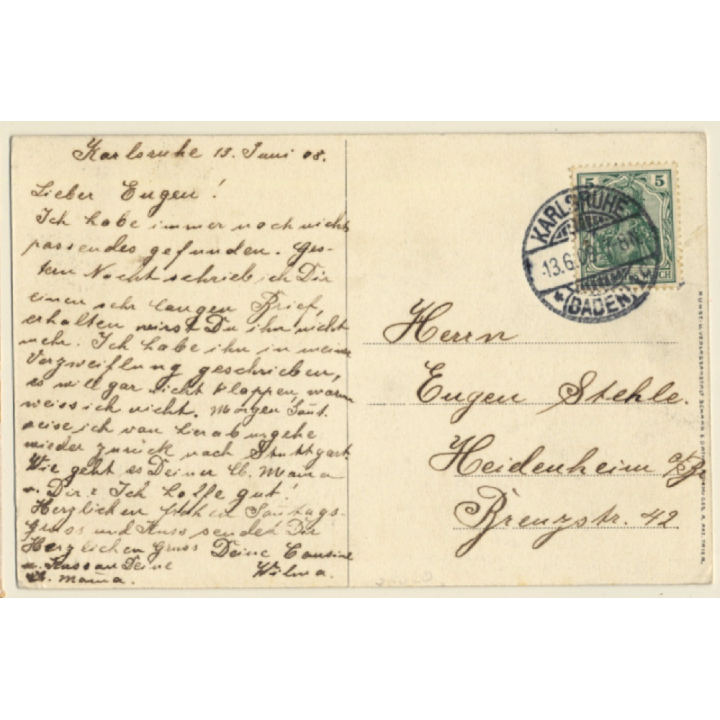 Karlsruhe 13. Juni 08.
Lieber Eugen!
Ich habe immer noch nichts
passendes gefunden. Ges-
tern Nacht schrieb ich Dir
einen sehr langen Brief,
erhalten wirst Du ihn nicht
mehr. Ich habe ihn in meiner
Verzweiflung geschrieben,
es will gar nicht klappen, warum
weiss ich nicht. Morgen
reise ich von hier
wieder zurück nach Stuttgart.
Wie geht es Deiner lb. Mama
u. Dir? Ich hoffe gut!
Herzlichen frohen Sontags-
Gruss und Kuss sendet Dir
Herzlichen Gruss Deine Cousine
u. Kuss an Deine Wilma.
lb. Mama.
5 5
KARLSRUHE
13.6.08
(BADEN)
Herrn
Eugen Stehle.
Heidenheim a/
Brenzstr. 42